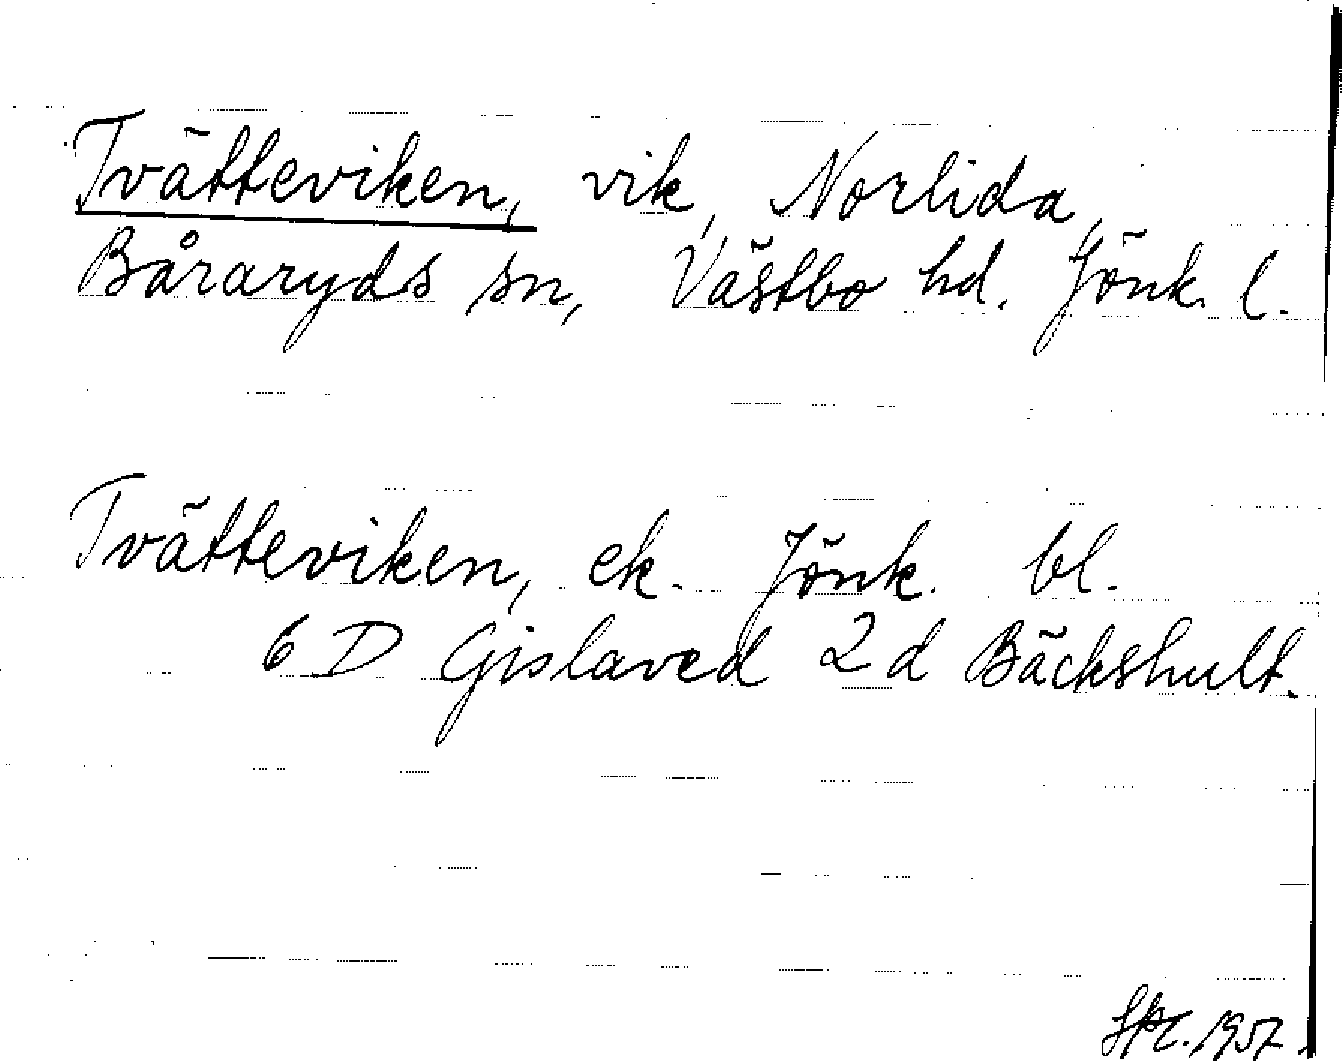 Tvätteviken, vik, Norlida,
Båraryds sn, Västbo hd. Jönk. l.
Tvätteviken, ek. Jönk. bl.
6 D Gislaved 2 d Bäckshult.
1957.